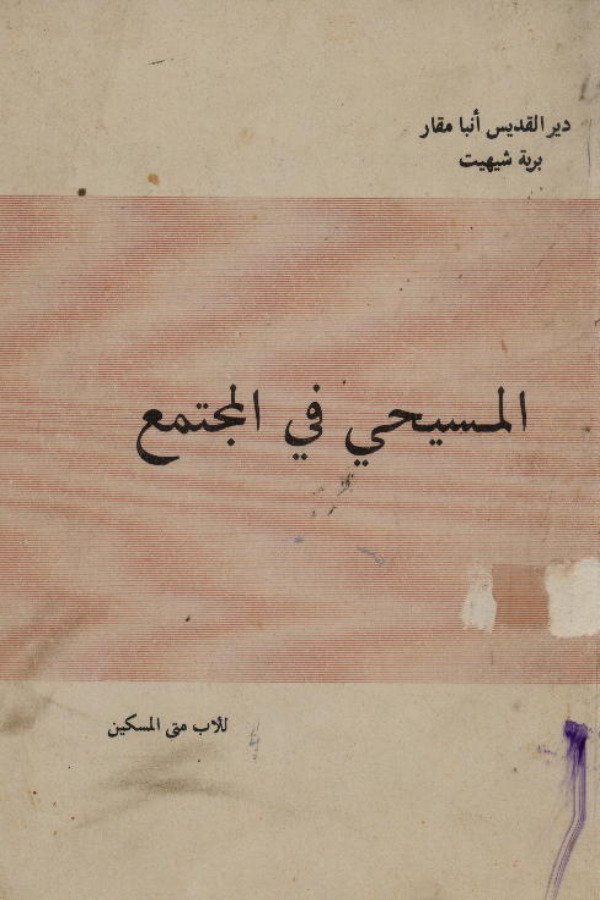 دير القديس أنبا مقار
برية شيهيت
المسيحي في المجتمع
للاب متى المسكين